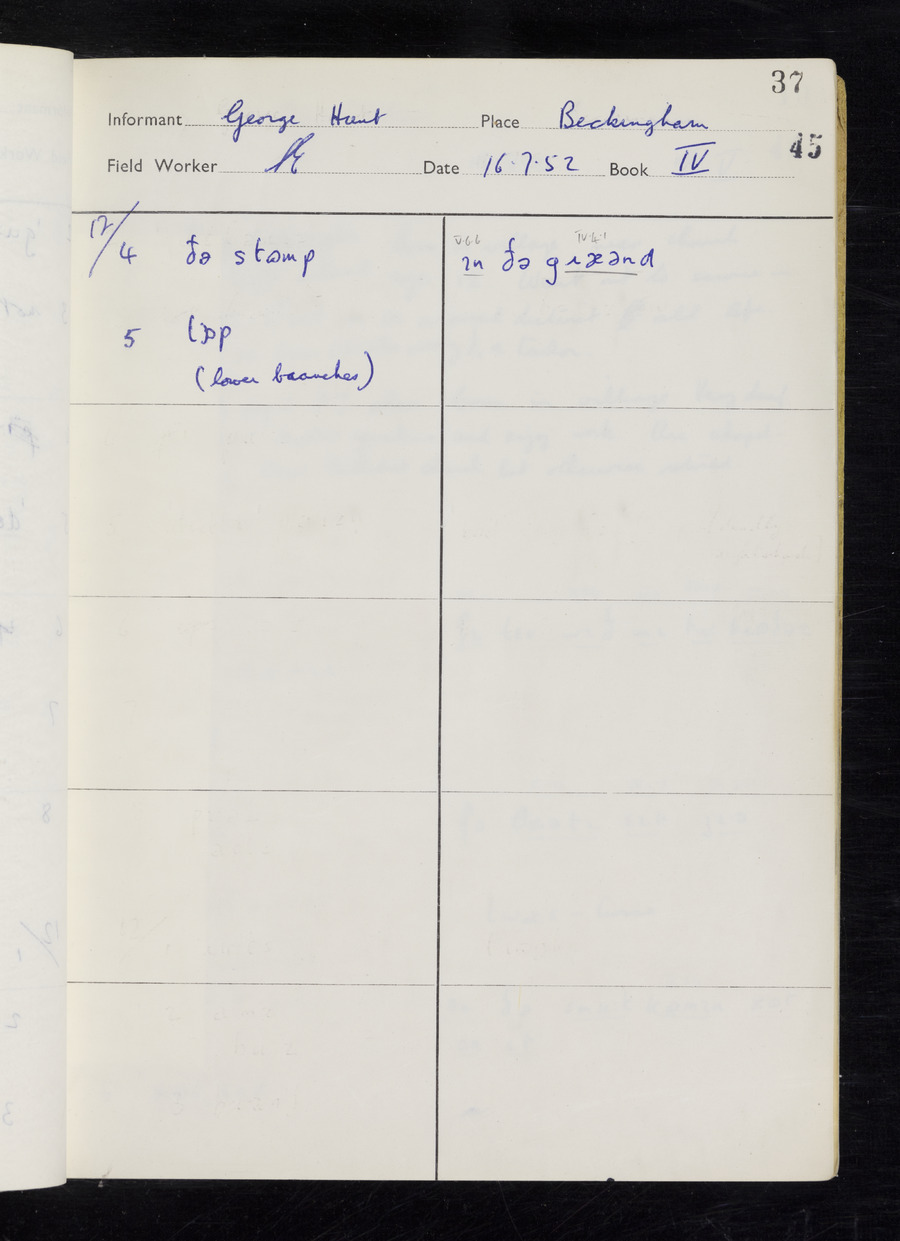 37
Informant George Hunt Place Beckingham
45
Field Worker Date 16.7.52 Book IV
12/
V.6.6 IV.4.1
4 ðə stɒmp ɪn ðə gɹæənd
5 lɒp
(lower branches)